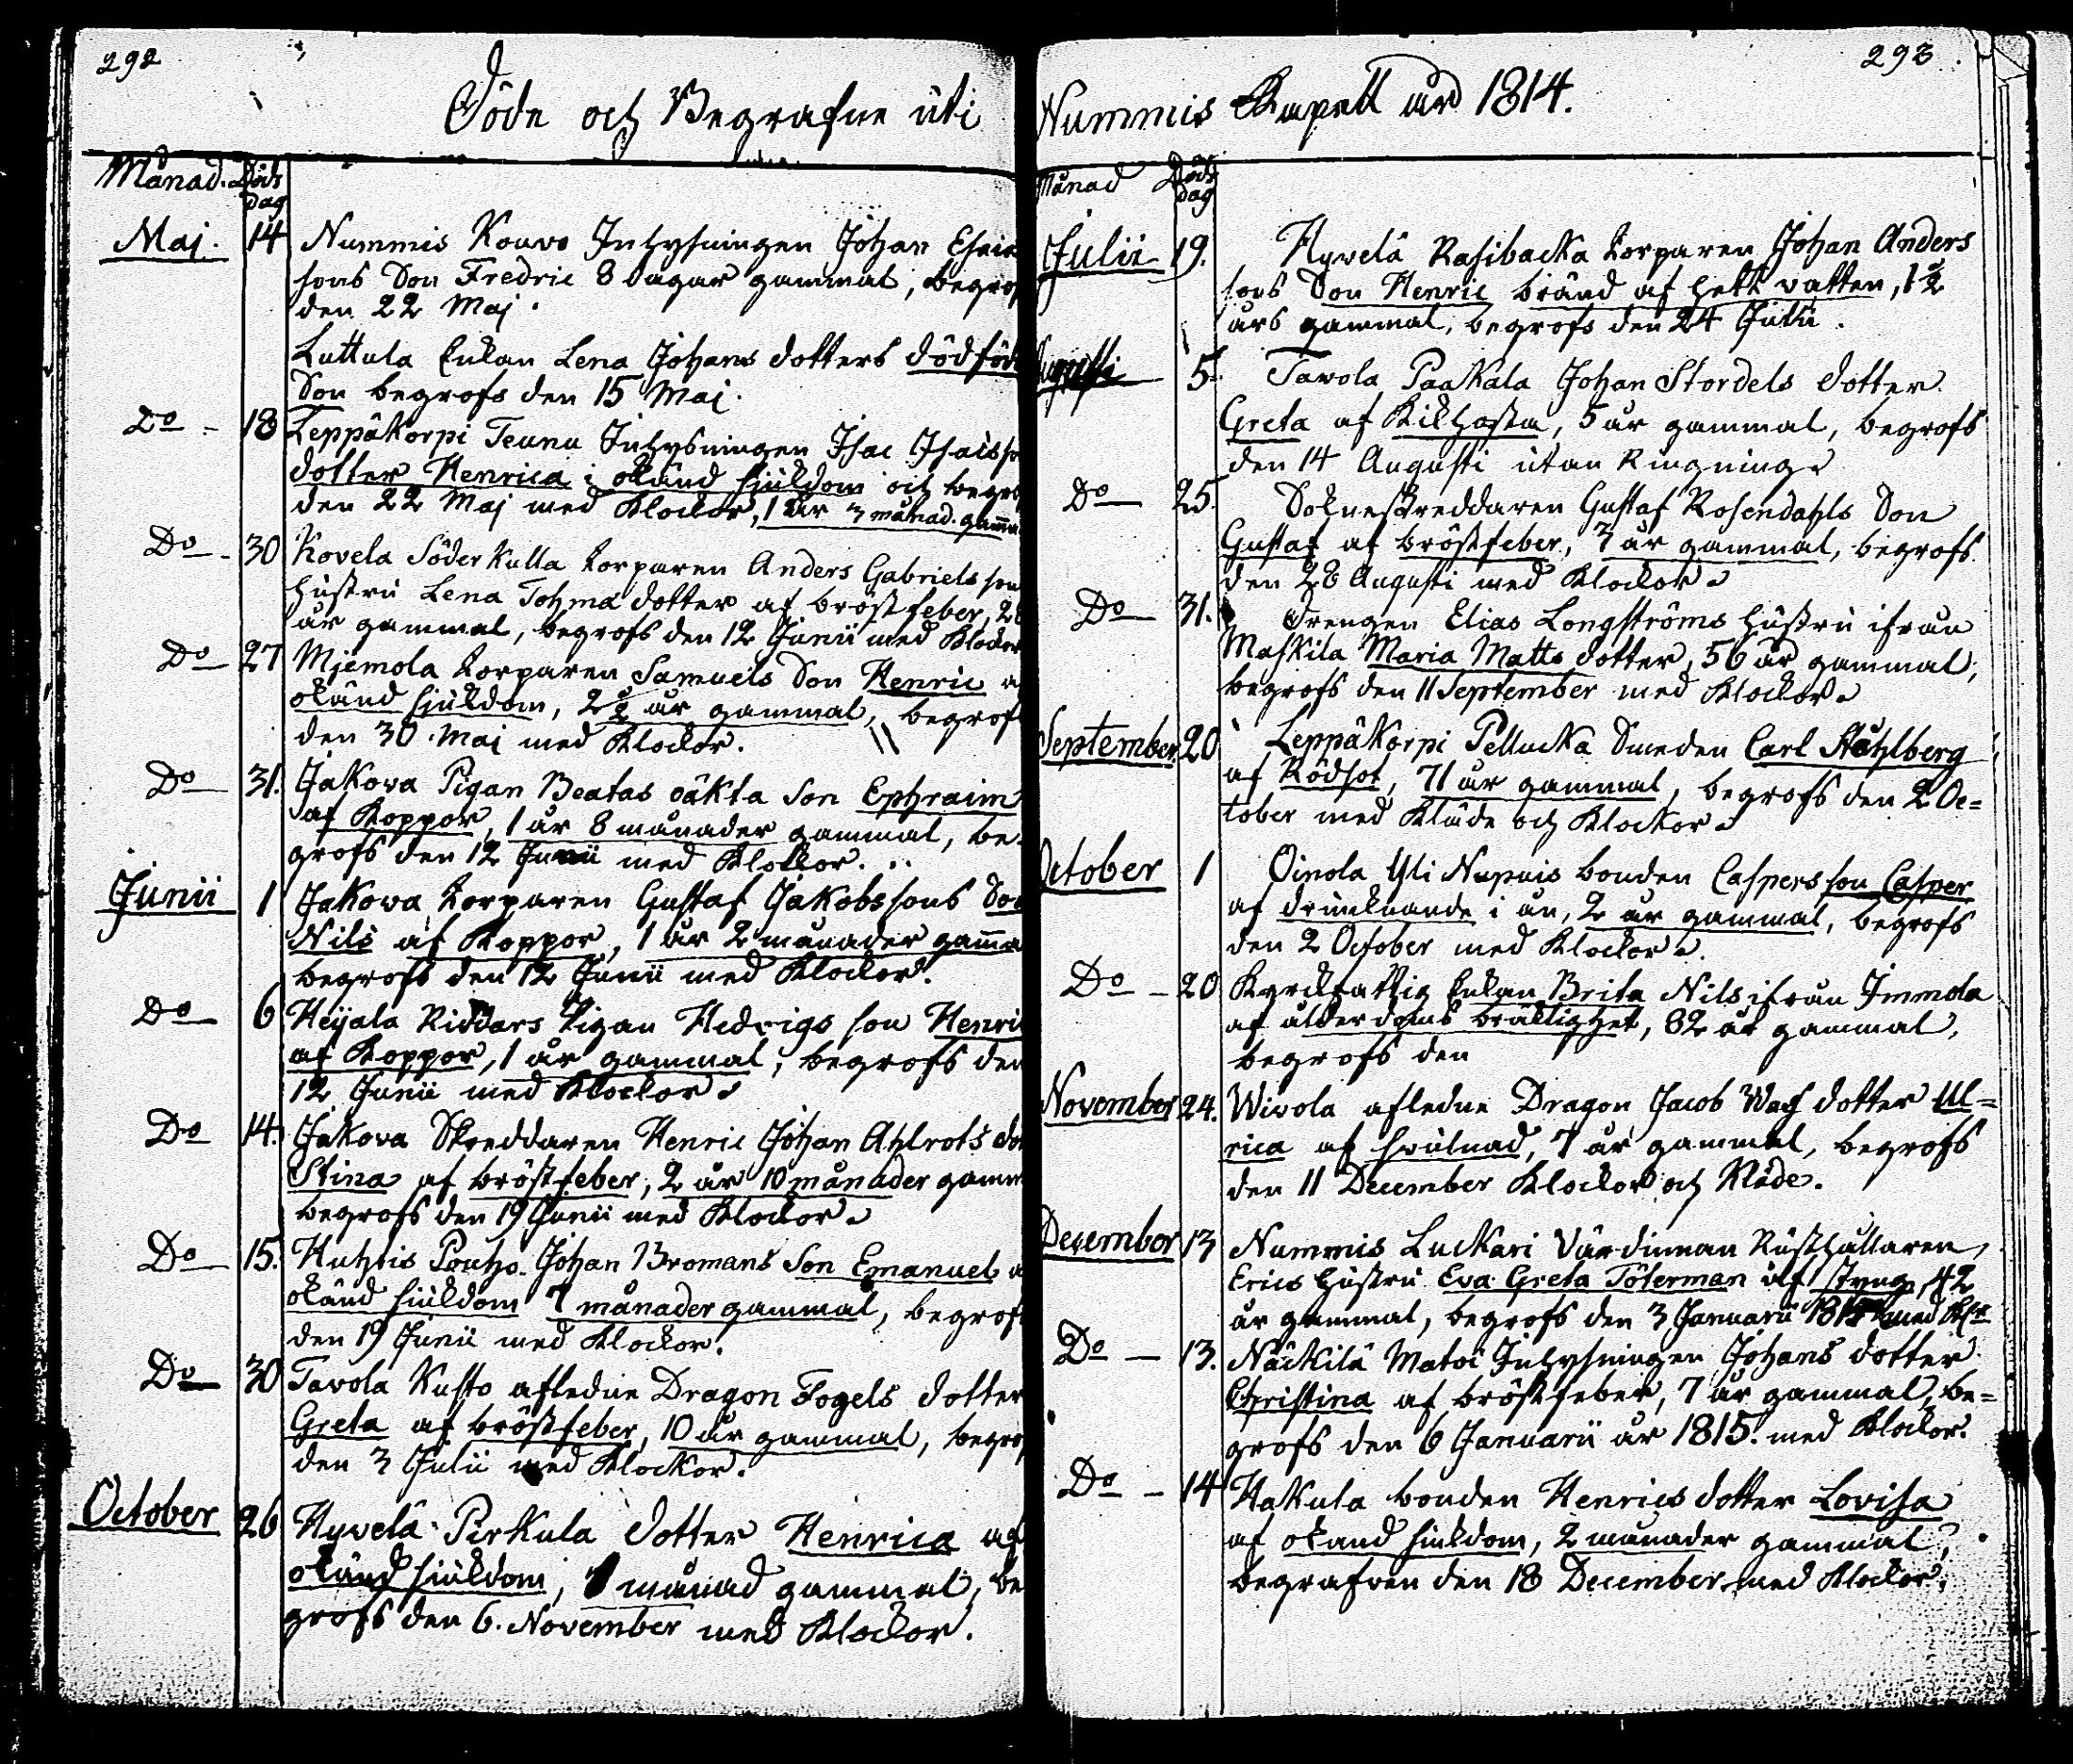 292
Döde och Begrafne uti
Månad. Döds
dag
Maj. 14 Nummis Kouvo Inhysningen Johan Esais
sons Son Fredric 8 dagar gammal, begrof
den 22 Maj.
Luttula Enkan Lena Johans dotters dödföd
Son begrofs den 15 Maj.
Do - 18 Leppäkorpi Teunu Inhysningen Isac Isacsso
dotter Henrica i okänd siukdom och begro
den 22 Maj med Klockor, 1 år 3 månad. gamma
Do - 30 Kovela Söderkulla torparen Anders Gabrielsson
hustru Lena Tohma dotter af bröstfeber, 28
år gammal, begrofs den 12 Junii med Klockor
Do - 27 Mjemola torparen Samuels Son Henric a
okänd siukdom, 2 ½ år gammal, begrof
den 30 Maj med Klockor.
Do 31. Jakova Pigan Beatas oäkta Son Ephraim
af Koppor, 1 år 8 månader gammal, be-
grofs den 12 Junii med Klockor.
Junii 1 Jakowa torparen Gustaf Jakobssons Son
Nils af Koppor, 1 år 2 månader gamma
begrofs den 12 Junii med Klockor.
Do 6 Heijala Riddars Pigan Hedvigs son Henri
af Koppor, 1 år gammal, begrofs den
12 Junii med Klockor
Do 14. Jakova Skreddaren Henric Johan Ahlrots do
Stina af bröstfeber, 2 år 10 månader gamm
begrofs den 19 Junii med Klockor
Do 15. Huhtis Pouho Johan Bromans Son Emanuel a
okänd siukdom 7 månader gammal, begrof
den 19 Junii med Klockor.
Do 30 Tavola Kusto afledne Dragon Fogels dotter
Greta af bröstfeber, 10 år gammal, begrof
den 3 Julii med Klockor.
October 26 Hyvelä Pirkula dotter Henrica af
okänd siukdom, 1 månad gammal, be
grofs den 6. November med Klockor.
293
Nummis Capell år 1814.
Månad Döds
dag
Julii 19. Hyvelä Rasibacka torparen Johan Anders
sons Son Henric bränd af hett vatten, 1 ½
års gammal, begrofs den 24 Julii.
Augusti 5. Tavola Paakala Johan Stordels dotter
Greta af Kikhosta, 5 år gammal, begrofs
den 14 Augusti utan Ringning
Do 25. Sokneskreddaren Gustaf Rosendahls Son
Gustaf af bröstfeber, 7 år gammal, begrofs
den 28 Augusti med Klockor
Do 31. Drengen Elias Longströms hustru ifrån
Maskila Maria Matts dotter, 56 år gammal,
begrofs den 11 September med Klockor
September 20 Leppäkorpi Pellucka Smeden Carl Ståhlberg
af Rödsot, 71 år gammal, begrofs den 2 Oc=
tober med Kläde och Klockor
October 1 Oinola Yli Nupuis bonden Caspers son Casper
af drunknande i ån, 2 år gammal, begrofs
den 2 October med Klockor.
Do - 20 Kyrckfattig Enkan Brita Nils ifrån Immola
af ålderdoms bräcklighet, 82 år gammal,
begrofs den
November 24. Wivola afledne Dragon Jacob Wass dotter Ul=
rica af svulnad, 7 år gammal, begrofs
den 11 December Klockor och Kläde.
December 13 Nummis Luckari Värdinnan Rusthållaren
Erics hustru Eva Greta Töterman af styng, 42
år gammal, begrofs den 3 Januarii 1815 med Kl
Do - 13. Näckilä Matoi Inhysningen Johans dotter
Christina af bröstfeber, 7 år gammal, be=
grofs den 6 Januarii år 1815. med Klockor.
Do - 14 Hakula bonden Henrics dotter Lovisa
af okänd siukdom, 2 månader gammal,
begrafven den 18 December med Klockor.